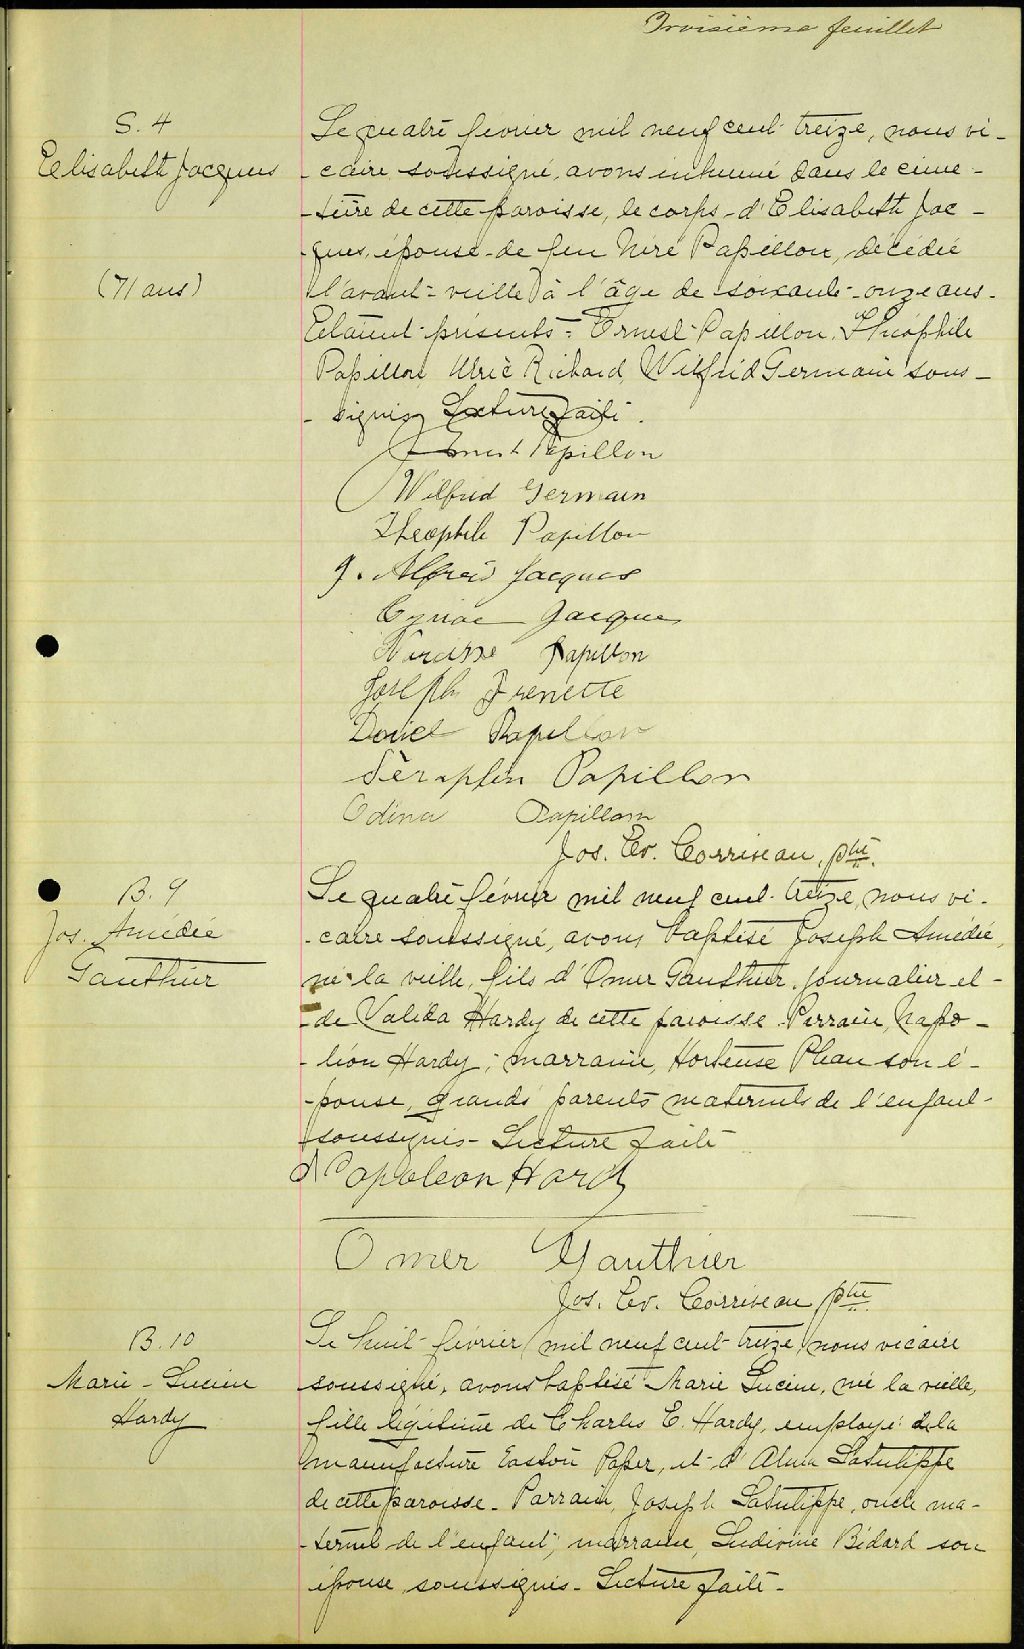 Troisième feuillet
S. 4
Elisabeth Jacques
(71 ans)
Le quatre février mil neuf cent treize, nous vi-
-caire soussigné, avons inhumé dans le cime-
-tière de cette paroisse, le corps d'Elisabeth Jac-
-ques, épouse de feu Néré Papillon, décédée
l'avant-veille à l'âge de soixante-onze ans.
Etaient présents: Ernest Papillon, Théophile
Papillon Ulric Richard, Wilfrid Germain sous-
-signés Lecture faite.
Ernest Papillon
Wilfrid Germain
Theophile Papillon
J. Alfred Jacques
Cyriac Jacques
Narcisse Papillon
Joseph Frenette
Papillon
Sèraphin Papillon
Odina Papillon
Jos. Ev. Corriveau, ptre.
B. 9
Jos. Amédée
Gauthier
Le quatre février mil neuf cent treize, nous vi-
-caire soussigné, avons baptisé Joseph Amédée,
né la veille, fils d'Omer Gauthier, journalier et
-de Valéda Hardy de cette paroisse. Parrain, Napo-
-léon Hardy; marraine, Hortense son é-
-pouse, grands parents maternels de l'enfant
soussignés - Lecture faite
Napoleon Hardy
Omer Gauthier
Jos. Ev. Corriveau ptre
B. 10
Marie-Lucienne
Hardy
Le huit février mil neuf cent treize, nous vicaire
soussigné, avons baptisé Marie Lucienne, née la veille,
fille légitime de Charles E. Hardy, employé de la
manufacture Easton Paper, et d'Alma Latulippe
de cette paroisse - Parrain, Joseph Latulippe, oncle ma-
-ternel de l'enfant; marraine, Ludivine Bédard son
épouse, soussignés - Lecture faite -